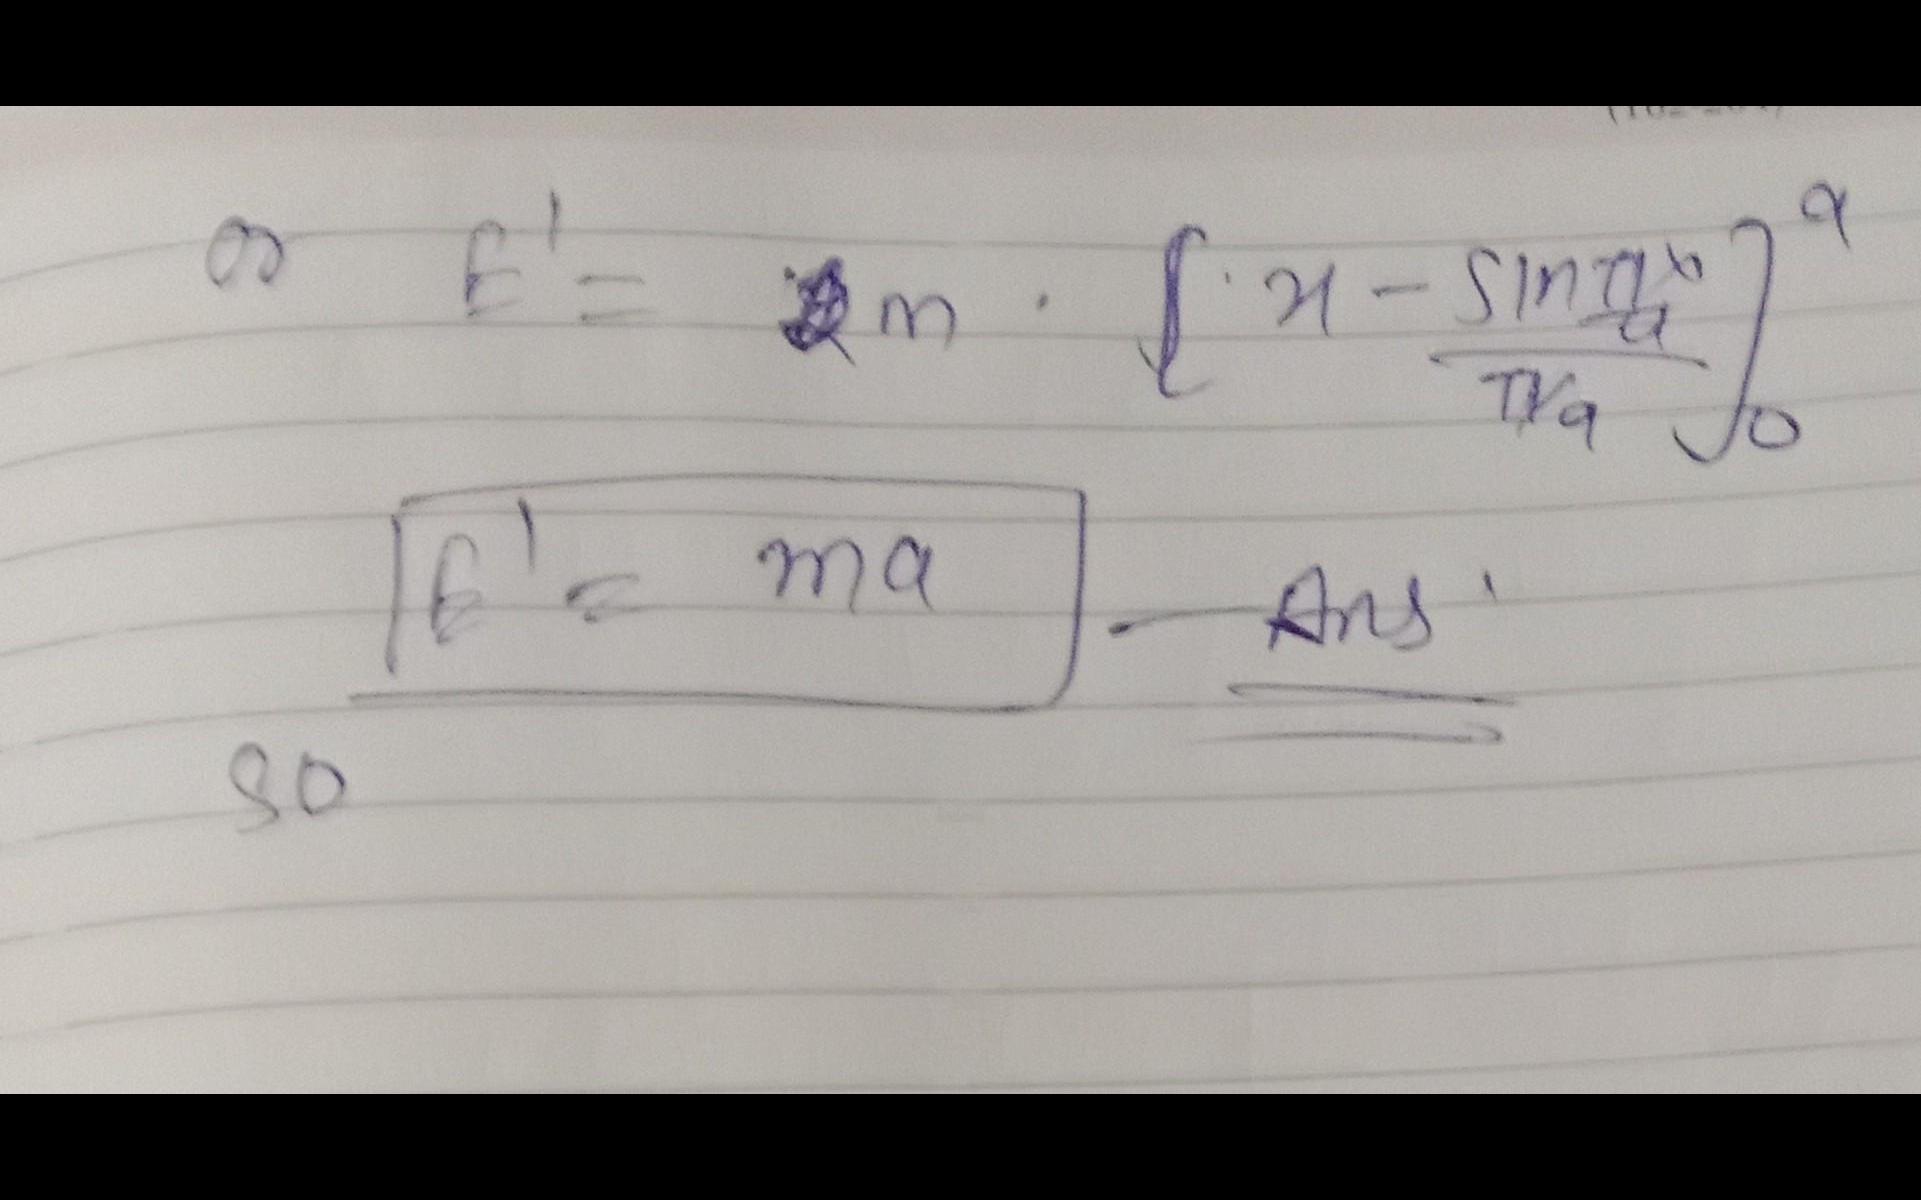 or E' = m · [x - sin πx/a / π/a]₀ᵃ
E' = ma — Ans'
so